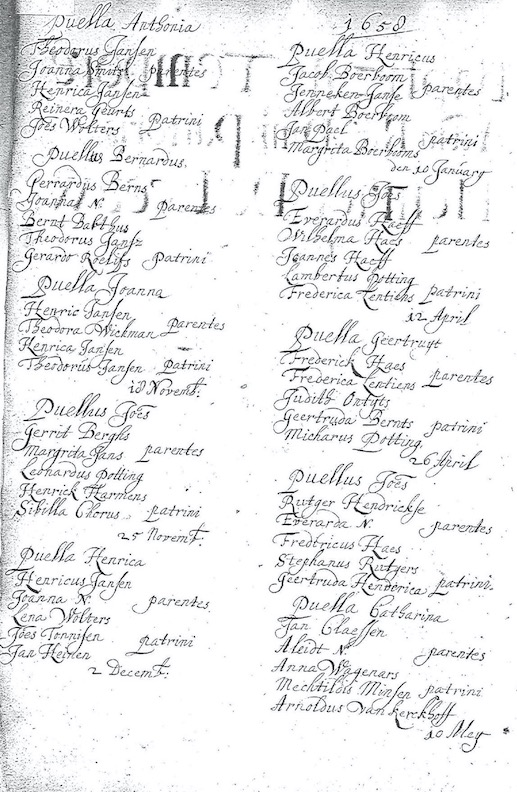 Puella Anthonia
Theodorus Jansen
Joanna Smits parentes
Henrica Jansen
Reinera Geurts
Joes Wolters Patrini
Puellus Bernardus.
Gerrardus Berns
Joanna N. Parentes
Bernt Babthus
Theodorus Jansz
Gerardt Roelifs Patrini
Puella Joanna
Henric Jansen
Theodora Wickman parentes
Henrica Jansen
Theodorus Jansen Patrini
18 Novembr:
Puellus Joes
Gerrit Berghs
Margrita Jans parentes
Leonardus Potting
Henrick Harmens
Sibilla Chorus patrini
25 Novemb:
Puella Henrica
Henricus Jansen
Joanna N parentes
Lena Wolters
Joes Tonnisen patrini
Jan Heinen
2 Decemb:
1658
Puella Henricus
Jacob Boerboom
Jenneken Janse parentes
Albert Boerboom
Jan Pael
Margrita Boerboms patrini
den 10 January
Puellus Joes
Everardus Haeff
Wilhelma Haes parentes
Joannes Haeff
Lambertus Potting
Frederica Lentiens patrini
12 April
Puella Geertruyt
Frederick Haes
Frederica Lentiens parentes
Judith
Geertruda Bernts patrini
Micharus Potting
26 April
Puellus Joes
Rutger Hendrickse
Everarda N. parentes
Fredericus Haes
Stephanus Rutgers
Geertruda Henderica patrini.
Puella Catharina
Jan Claessen
Aleidt N. parentes
Anna Wagenars
Mechtildis Minsen patrini
Arnoldus van Kerckhoff
10 Mey